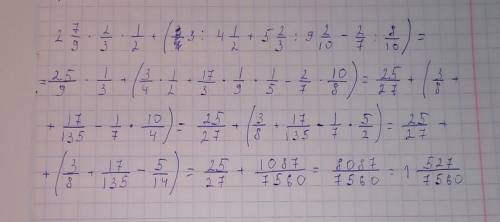 2 7/9 · 1/3 · 1/2 + (3/4 3 : 4 1/2 + 5 2/3 : 9 2/10 - 2/7 : 8/10) =
= 25/9 · 1/3 + (3/4 · 1/2 + 17/3 · 1/9 · 1/5 - 2/7 · 10/8) = 25/27 + (3/8 +
+ 17/135 - 1/7 · 10/4) = 25/27 + (3/8 + 17/135 - 1/7 · 5/2) = 25/27 +
+ (3/8 + 17/135 - 5/14) = 25/27 + 1087/7560 = 8087/7560 = 1 527/7560